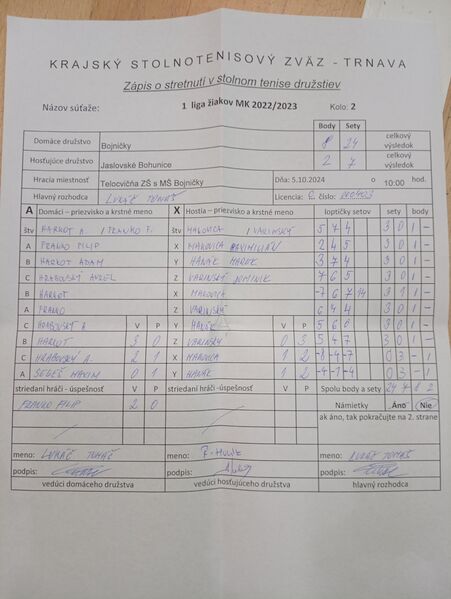 KRAJSKÝ STOLNOTENISOVÝ ZVÄZ - TRNAVA
Zápis o stretnutí v stolnom tenise družstiev
Názov súťaže: 1 liga žiakov MK 2022/2023 Kolo: 2
Body Sety
Domáce družstvo Bojničky 8 24 celkový výsledok
Hosťujúce družstvo Jaslovské Bohunice 2 7 celkový výsledok
Hracia miestnosť Telocvičňa ZŠ s MŠ Bojničky Dňa: 5.10.2024 o 10:00 hod.
Hlavný rozhodca LUKÁČ TOMÁŠ Licencia: C. číslo:
A Domáci – priezvisko a krstné meno X Hostia – priezvisko a krstné meno loptičky setov sety body
štv HARKOT A. / FRANKO F. štv MAKOVICA / VARINSKÝ 5 7 4 3 0 1 -
A FRANKO FILIP X MAKOVICA MAXIMILIÁN 2 4 5 3 0 1 -
B HARKOT ADAM Y HANÁK MAREK 3 7 4 3 0 1 -
C HRABOVSKÝ Z VARINSKÝ DOMINIK 7 6 5 3 0 1 -
B HARKOT X MAKOVICA -7 6 7 14 3 1 1 -
A FRANKO Z VARINSKÝ 6 4 4 3 0 1 -
C HRABOVSKÝ V P Y HANÁK V P 5 6 6 3 0 1 -
B HARKOT 3 0 Z VARINSKÝ 0 3 5 4 7 3 0 1 -
C HRABOVSKÝ A. 2 1 X MAKOVICA 1 2 -8 -4 -7 0 3 - 1
A MAXIM 0 1 Y HANÁK 1 2 -4 -1 -4 0 3 - 1
striedaní hráči - úspešnosť V P striedaní hráči - úspešnosť V P Spolu body a sety 24 7 8 2
FRANKO FILIP 2 0 Námietky Áno Nie
ak áno, tak pokračujte na 2. strane
meno: LUKÁČ TOMÁŠ meno: meno: LUKÁČ TOMÁŠ
podpis: podpis: podpis:
vedúci domáceho družstva vedúci hosťujúceho družstva hlavný rozhodca